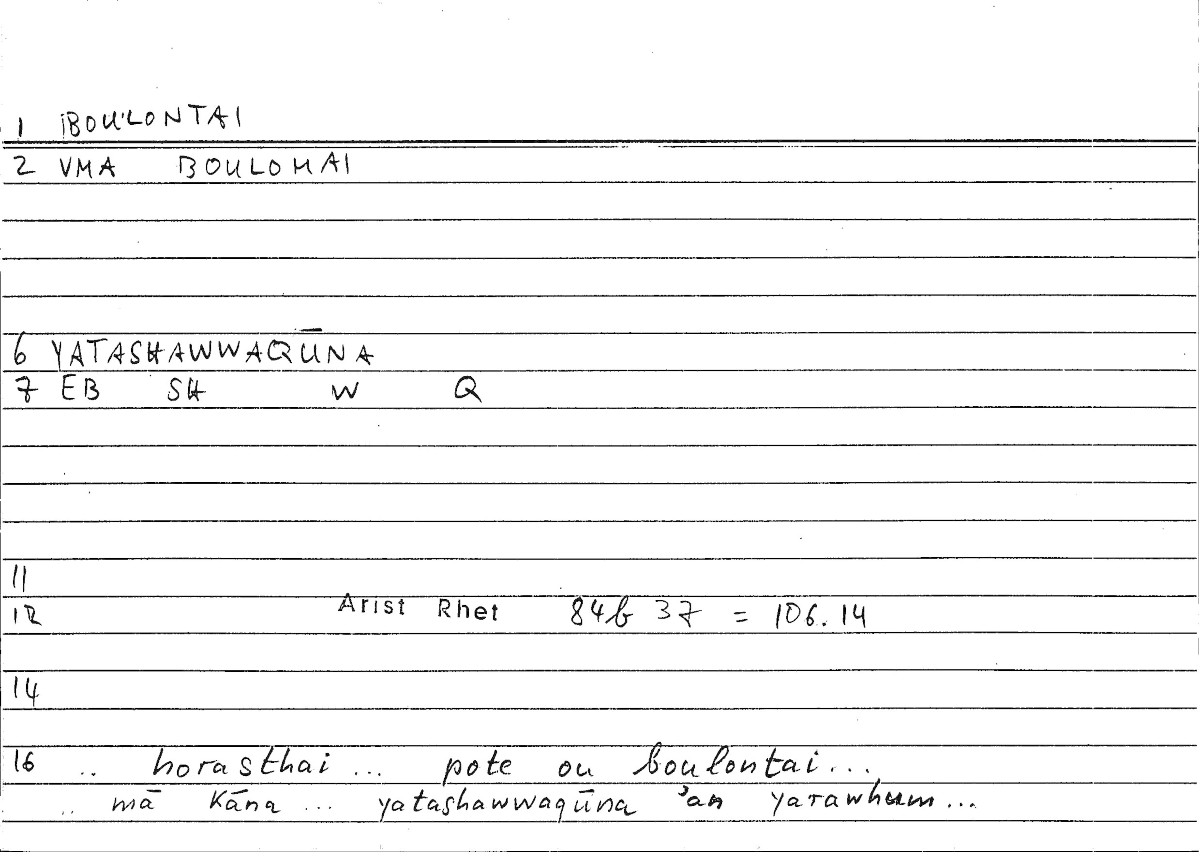 1 BOU'LONTAI
2 VMA BOULOMAI
6 YATASHAWWAQŪNA
7 EB SH W Q
11
12 Arist Rhet 84b 37 = 106.14
14
16 .. horasthai ... pote ou boulontai...
.. mā kāna ... yatashawwaqūna ʾan yarawhum...